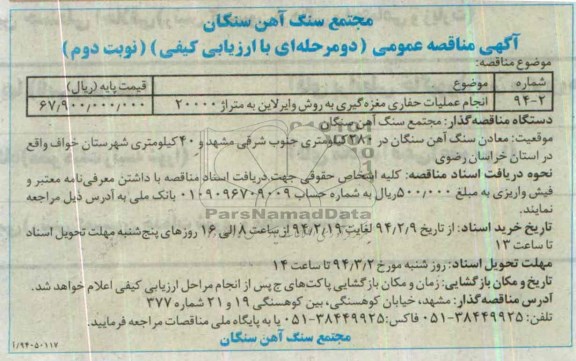 مجتمع سنگ آهن سنگان
آگهی مناقصه عمومی (دومرحله‌ای با ارزیابی کیفی) (نوبت دوم)
موضوع مناقصه:
شماره موضوع قیمت پایه (ریال)
۹۴-۲ انجام عملیات حفاری مغزه‌گیری به روش وایرلاین به متراژ ۲۰۰۰۰ ۶۷/۹۰۰/۰۰۰/۰۰۰
دستگاه مناقصه‌گذار: مجتمع سنگ آهن سنگان
موقعیت: معادن سنگ آهن سنگان در ۲۸۰ کیلومتری جنوب شرقی مشهد و ۴۰ کیلومتری شهرستان خواف واقع
در استان خراسان رضوی
نحوه دریافت اسناد مناقصه: کلیه اشخاص حقوقی جهت دریافت اسناد مناقصه با داشتن معرفی‌نامه معتبر و
فیش واریزی به مبلغ ۵۰۰/۰۰۰ ریال به شماره حساب ۰۱۰۹۰۹۶۷۰۹۰۰۹ بانک ملی به آدرس ذیل مراجعه
نمایند.
ParsNamadData
تاریخ خرید اسناد: از تاریخ ۹۴/۲/۹ لغایت ۹۴/۲/۱۹ از ساعت ۸ الی ۱۶ روزهای پنج‌شنبه مهلت تحویل اسناد
تا ساعت ۱۳
مهلت تحویل اسناد: روز شنبه مورخ ۹۴/۳/۲ تا ساعت ۱۴
تاریخ و مکان بازگشایی: زمان و مکان بازگشایی پاکت‌های ج پس از انجام مراحل ارزیابی کیفی اعلام خواهد شد.
آدرس مناقصه‌گذار: مشهد، خیابان کوهسنگی، بین کوهسنگی ۱۹ و ۲۱ شماره ۳۷۷
تلفن: ۳۸۴۴۹۹۲۵-۰۵۱ فاکس: ۳۸۴۴۹۹۲۵-۰۵۱ یا به پایگاه ملی مناقصات مراجعه فرمایید.
مجتمع سنگ آهن سنگان
۱/۹۴۰۵۰۱۱۷